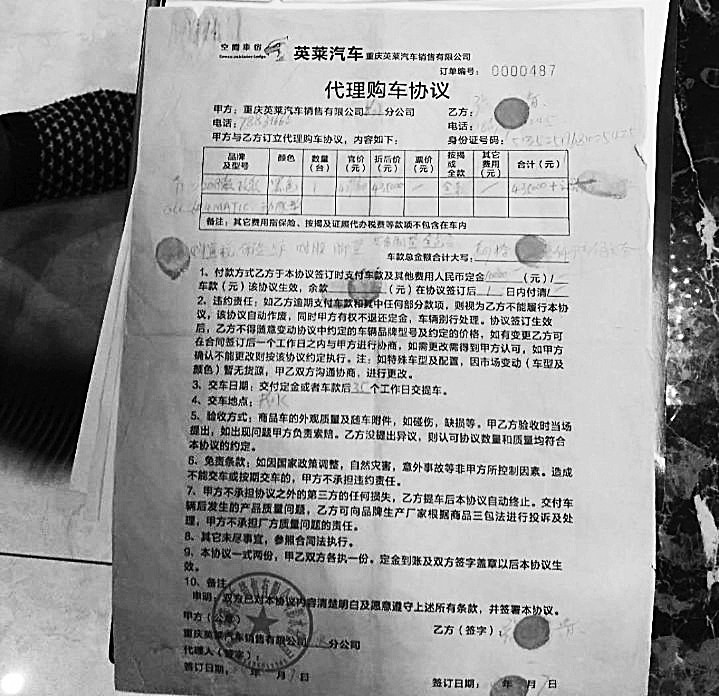 空间车宿
英莱汽车 重庆英莱汽车销售有限公司
订单编号： 0000487
代理购车协议
甲方：重庆英莱汽车销售有限公司 分公司
乙方：
电话：
电话：
甲方与乙方订立代理购车协议，内容如下：
身份证号码：
品牌及型号 颜色 数量（台） 官价（元） 折后价（元） 票价（元） 按揭或全款 其它费用（元） 合计（元）
黑色 1 435000 全款
4MATIC
备注：其它费用指保险、按揭及证照代办税费等款项不包含在车内
车款总金额合计大写：
1、付款方式乙方于本协议签订时支付车款及其他费用人民币定金 （元）/
车款（元）该协议生效，余款 （元）在协议签订后 1 日内付清/
2、违约责任：如乙方逾期支付车款和其中任何部分款项，则视为乙方不能履行本协
议，该协议自动作废，同时甲方有权不退还定金，车辆别行处理。协议签订生效
后，乙方不得随意变动协议中约定的车辆品牌型号及约定的价格，如有变更乙方可
在合同签订后一个工作日之内与甲方进行协商，如需更改需得到甲方认可，如甲方
确认不能更改则按该协议约定执行。注：如特殊车型及配置，因市场变动（车型及
颜色）暂无货源，甲乙双方沟通协商，进行更改。
3、交车日期：交付定金或者车款后35个工作日交提车。
4、交车地点：
5、验收方式：商品车的外观质量及随车附件，如碰伤，缺损等。甲乙方验收时当场
提出，如出现问题甲方负责索赔。乙方没提出异议，则认可协议数量和质量均符合
本协议的约定。
6、免责条款：如因国家政策调整，自然灾害，意外事故等非甲方所控制因素。造成
不能交车或按期交车的，甲方不承担违约责任。
7、甲方不承担协议之外的第三方的任何损失，乙方提车后本协议自动终止。交付车
辆后发生的产品质量问题，乙方可向品牌生产厂家根据商品三包法进行投诉及处
理，甲方不承担厂方质量问题的责任。
8、其它未尽事宜，参照合同法执行。
9、本协议一式两份，甲乙双方各执一份。定金到账及双方签字盖章以后本协议生
效。
10、备注
申明：双方已对本协议内容清楚明白及愿意遵守上述所有条款，并签署本协议。
甲方（公章）
乙方（签字）：
重庆英莱汽车销售有限公司 分公司
代理人（签字）：
签订日期： 年 月7日
签订日期： 年 月7日